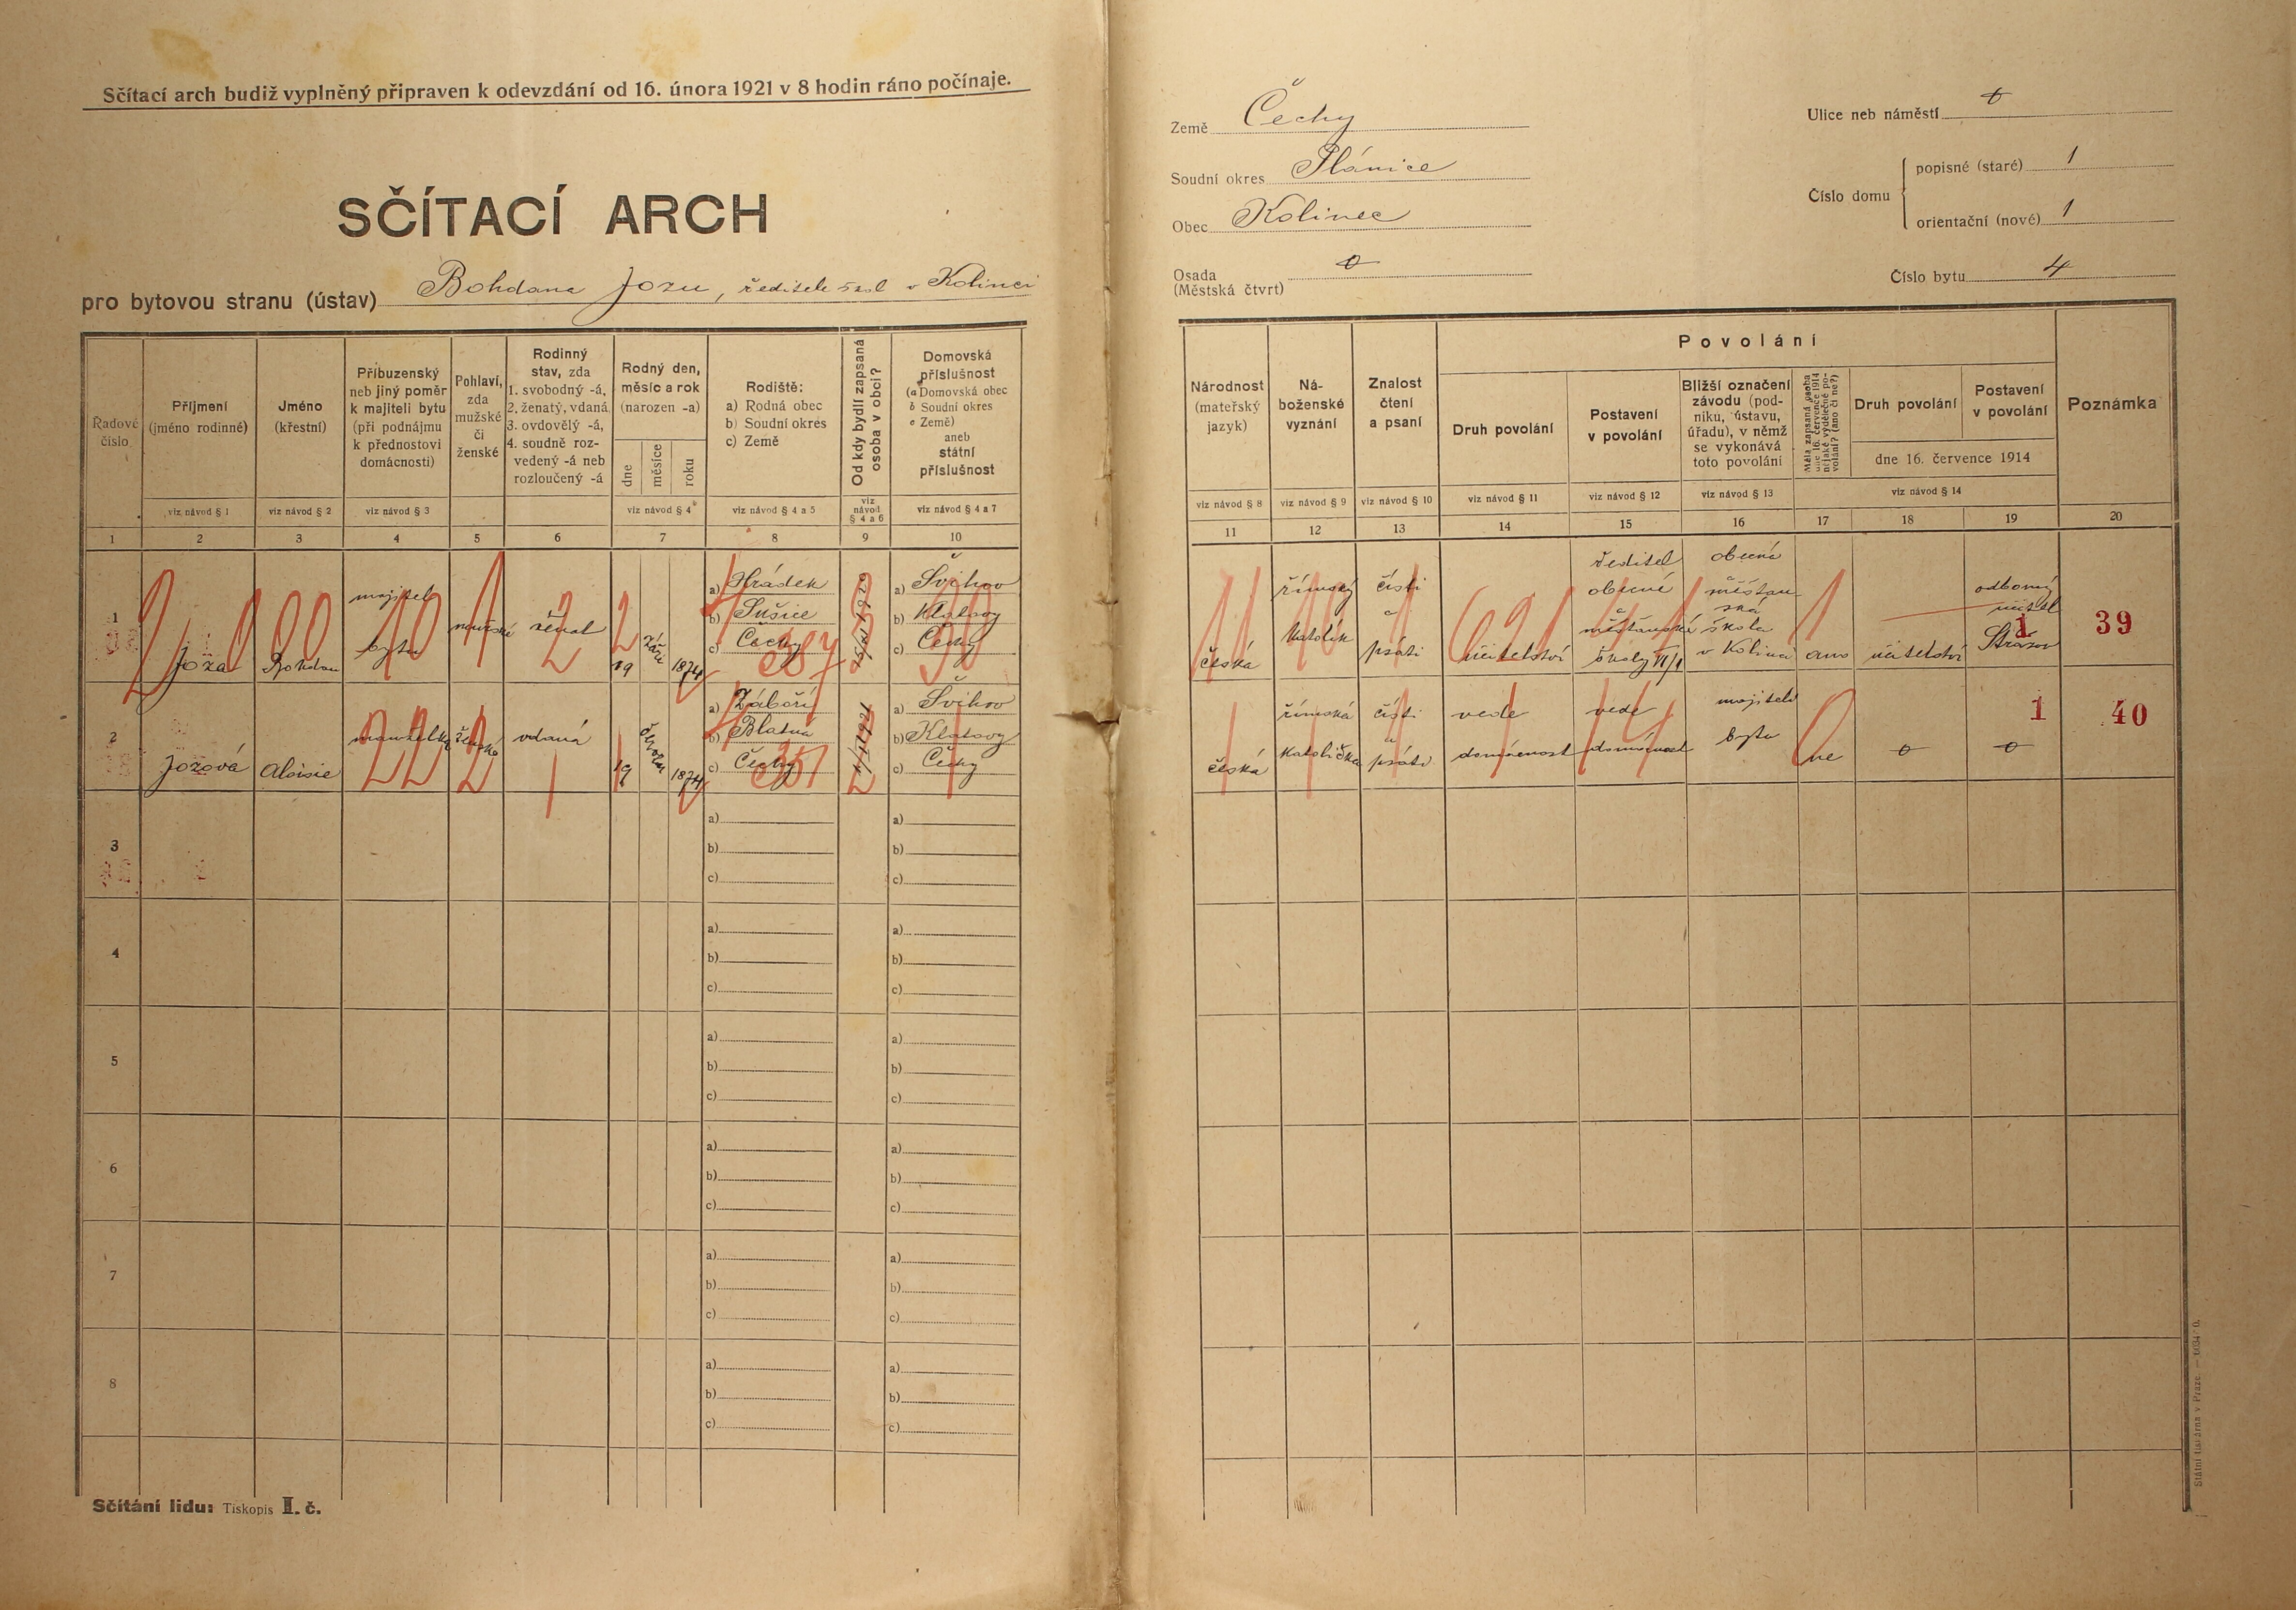 Sčítací arch budiž vyplněný připraven k odevzdání od 16. února 1921 v 8 hodin ráno počínaje.
SČÍTACÍ ARCH
pro bytovou stranu (ústav) Bohdana Jozu, ředitele škol v Kolinci
Země Čechy
Soudní okres Plánice
Obec Kolinec
Osada
(Městská čtvrt) 0
Ulice neb náměstí 0
Číslo domu
popisné (staré) 1
orientační (nové) 1
Číslo bytu 4
Řadové
číslo
Příjmení
(jméno rodinné)
viz návod § 1
Jméno
(křestní)
viz návod § 2
Příbuzenský
neb jiný poměr
k majiteli bytu
(při podnájmu
k přednostovi
domácnosti)
viz návod § 3
Pohlaví,
zda
mužské
či
ženské
Rodinný
stav, zda
1. svobodný -á,
2. ženatý, vdaná,
3. ovdovělý -á,
4. soudně roz-
vedený -á neb
rozloučený -á
Rodný den,
měsíc a rok
(narozen -a)
dne
měsíce
roku
viz návod § 4
Rodiště:
a) Rodná obec
b) Soudní okres
c) Země
viz návod § 4 a 5
Od kdy bydlí zapsaná
osoba v obci?
viz
návod
§ 4 a 6
Domovská
příslušnost
(a Domovská obec
b Soudní okres
c Země)
aneb
státní
příslušnost
viz návod § 4 a 7
Národnost
(mateřský
jazyk)
viz návod § 8
Ná-
boženské
vyznání
viz návod § 9
Znalost
čtení
a psaní
viz návod § 10
Povolání
Druh povolání
viz návod § 11
Postavení
v povolání
viz návod § 12
Bližší označení
závodu (pod-
niku, ústavu,
úřadu), v němž
se vykonává
toto povolání
viz návod § 13
Měla zapsaná osoba
dne 16. července 1914
nějaké výdělečné po-
volání? (ano či ne?)
Druh povolání
Postavení
v povolání
dne 16. července 1914
viz návod § 14
Poznámka
1 2 3 4 5 6 7 8 9 10
11 12 13 14 15 16 17 18 19 20
1
Joza
Bohdan
majitel
bytu
mužské
ženat
19
září
1874
a) Hrádek
b) Sušice
c) Čechy
387
a) Švihov
b) Klatovy
c) Čechy
česká
římský
katolík
čísti
a
psáti
učitelství
621
ředitel
obecné
a
měšťanské
školy VI/1
obecná
a
měšťan-
ská
škola
v Kolinci
ano
učitelství
odborný
učitel
Strážov
1
39
2
Jozová
Aloisie
manželka
ženské
vdaná
19
června
1874
a) Záboří
b) Blatná
c) Čechy
351
a) Švihov
b) Klatovy
c) Čechy
česká
římská
katolička
čísti
a
psáti
vede
domácnost
vede
domácnost
majiteli
bytu
ne
0
0
1
40
3
a)
b)
c)
a)
b)
c)
4
a)
b)
c)
a)
b)
c)
5
a)
b)
c)
a)
b)
c)
6
a)
b)
c)
a)
b)
c)
7
a)
b)
c)
a)
b)
c)
8
a)
b)
c)
a)
b)
c)
Sčítání lidu: Tiskopis I. č.
Státní tiskárna v Praze.